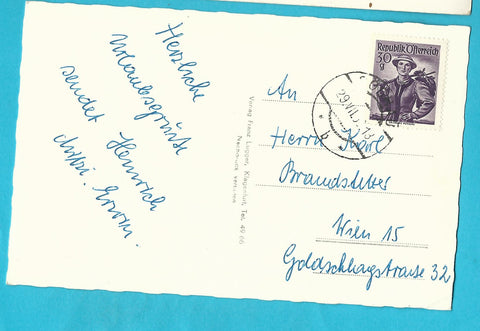 Herzliche
Urlaubsgrüße
sendet Heinrich
Republik Österreich
30
g
29.VII.
An
Herrn Karl
Brandstetter
Wien 15
Goldschlagstrasse 32
Verlag Franz Lugger, Klagenfurt, Tel. 49 66